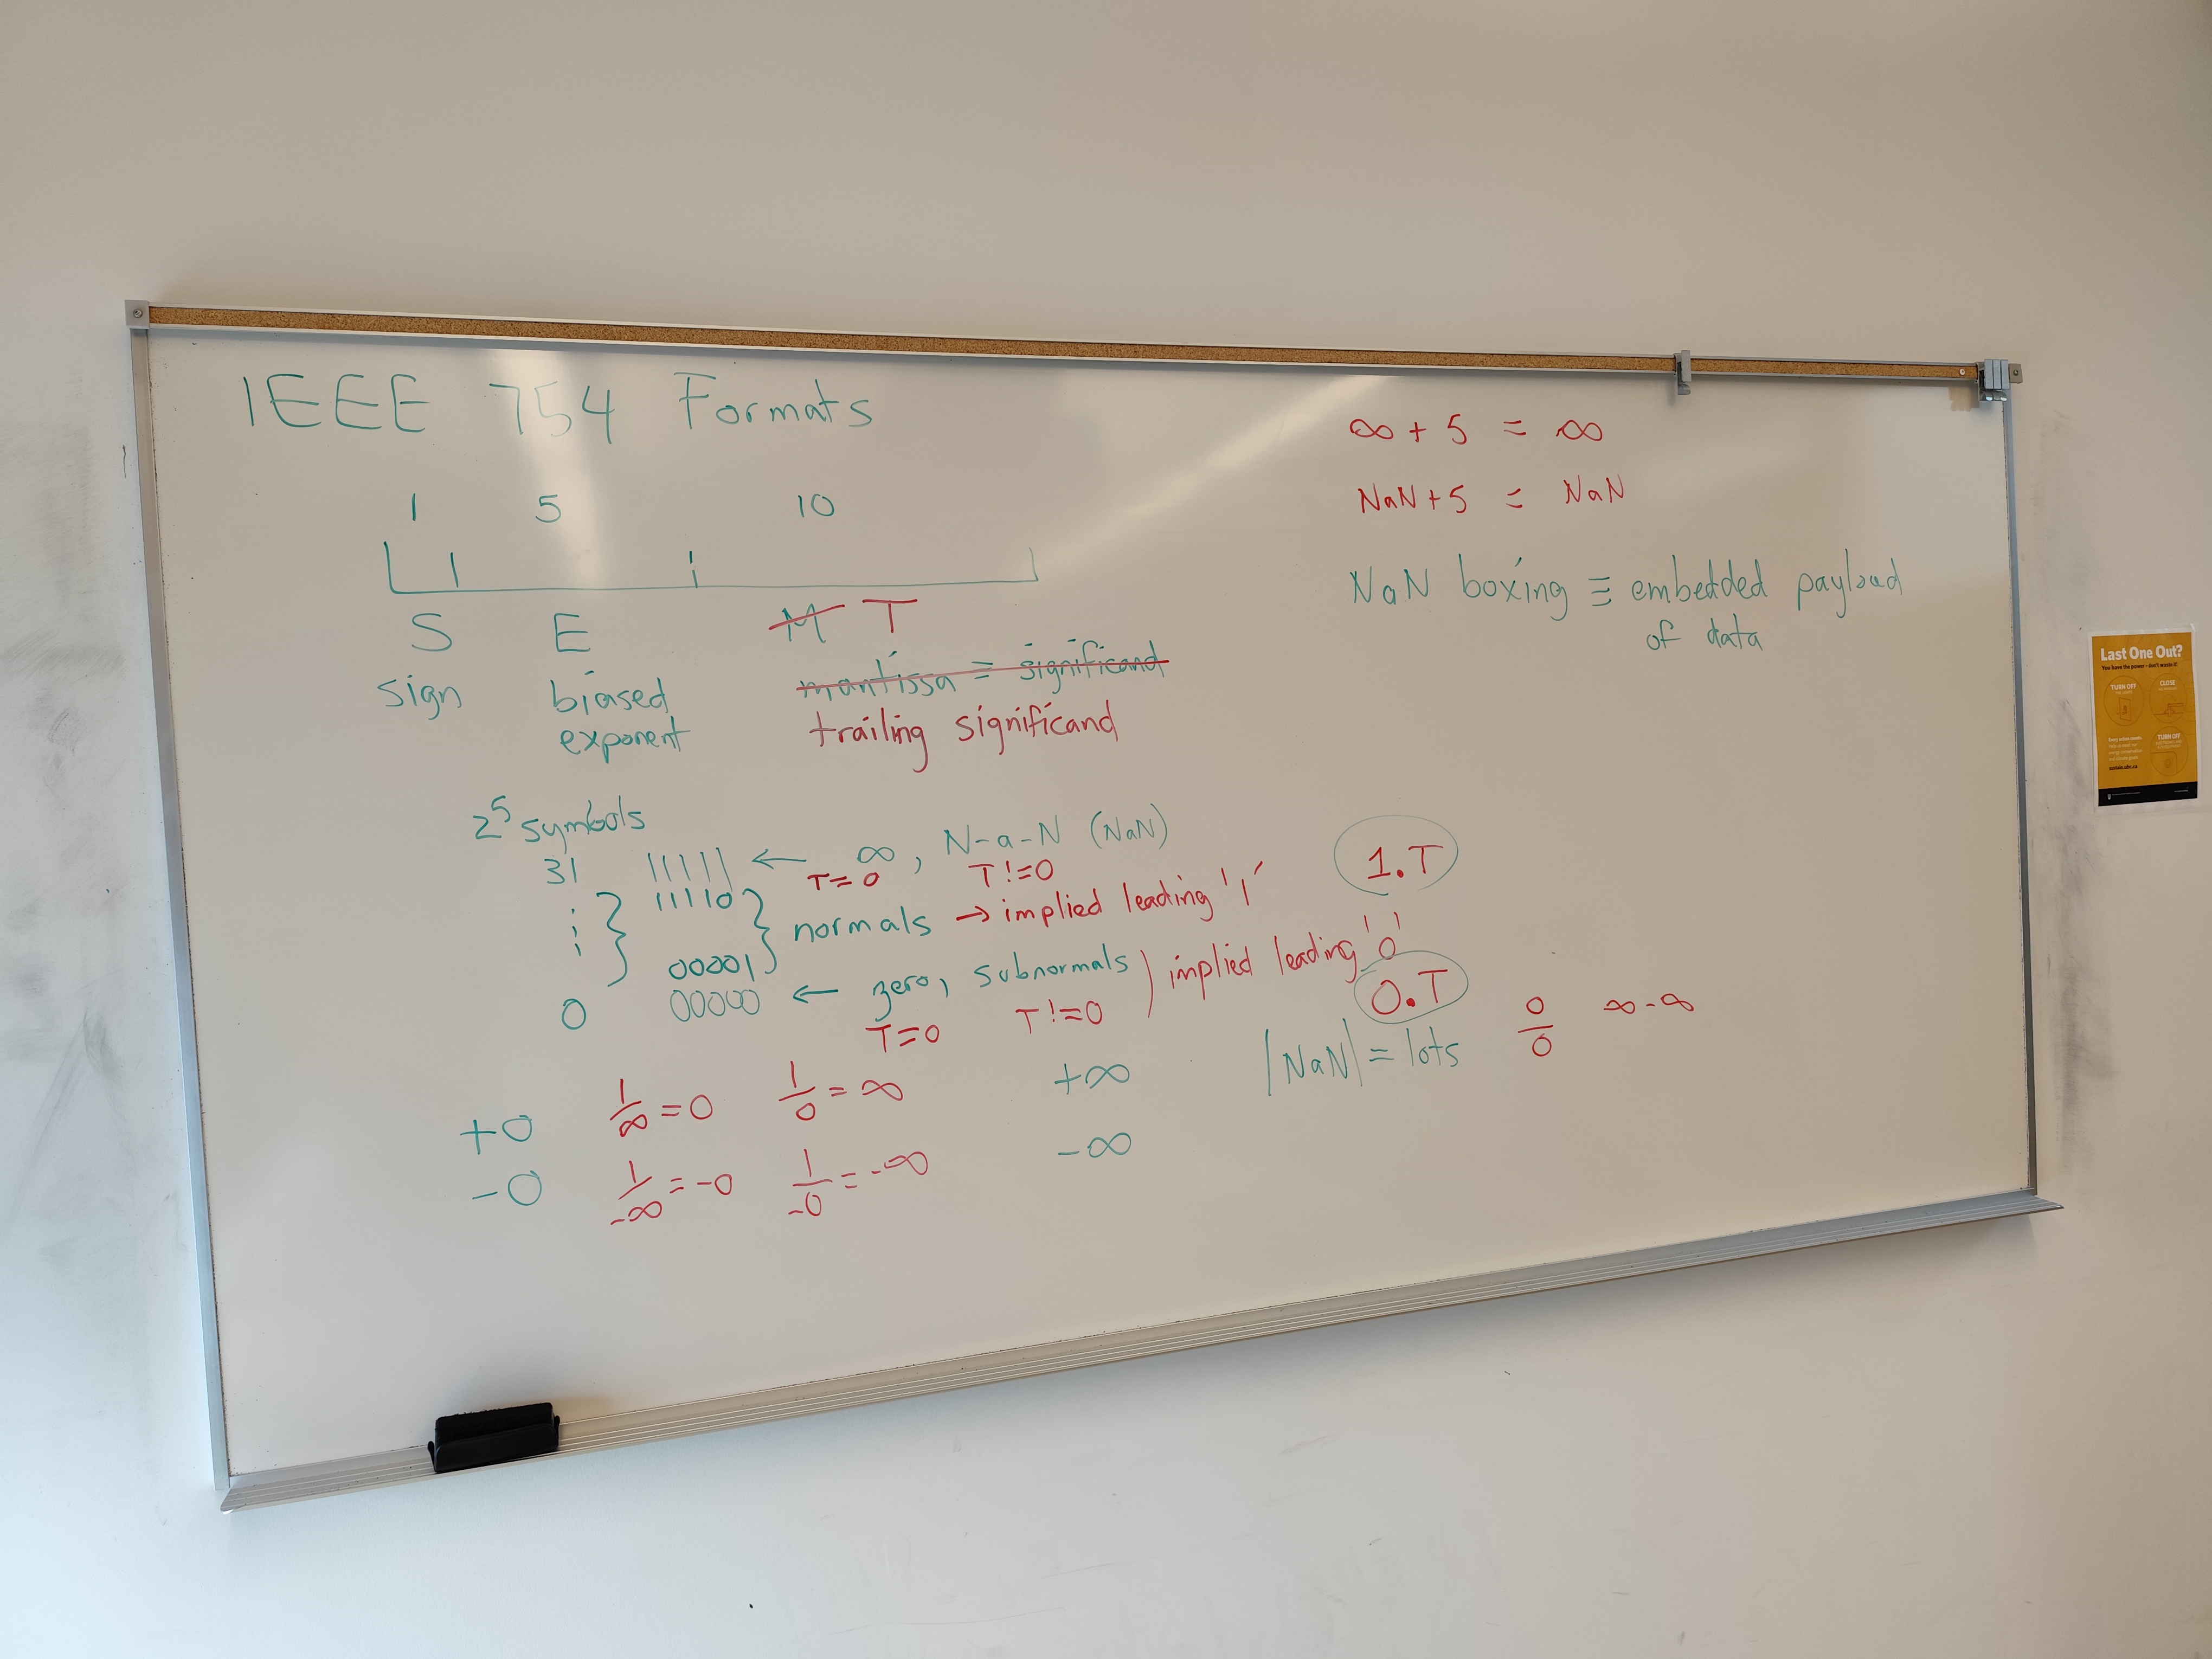 IEEE 754 Formats
1 5 10
S E M T
sign biased mantissa = significand
exponent trailing significand
2^5 symbols
31 11111 ← ∞, N-a-N (NaN)
T=0 T!=0
11110 } normals → implied leading '1'
00001
0 00000 ← zero, subnormals ) implied leading '0'
T=0 T!=0
1.T
0.T
+0 1/∞ = 0 1/0 = ∞ +∞
-0 1/-∞ = -0 1/-0 = -∞ -∞
|NaN| = lots 0/0 ∞-∞
∞ + 5 = ∞
NaN + 5 = NaN
NaN boxing ≡ embedded payload
of data
Last One Out?
You have the power - don't waste it!
TURN OFF
CLOSE
TURN OFF
sustain.ubc.ca